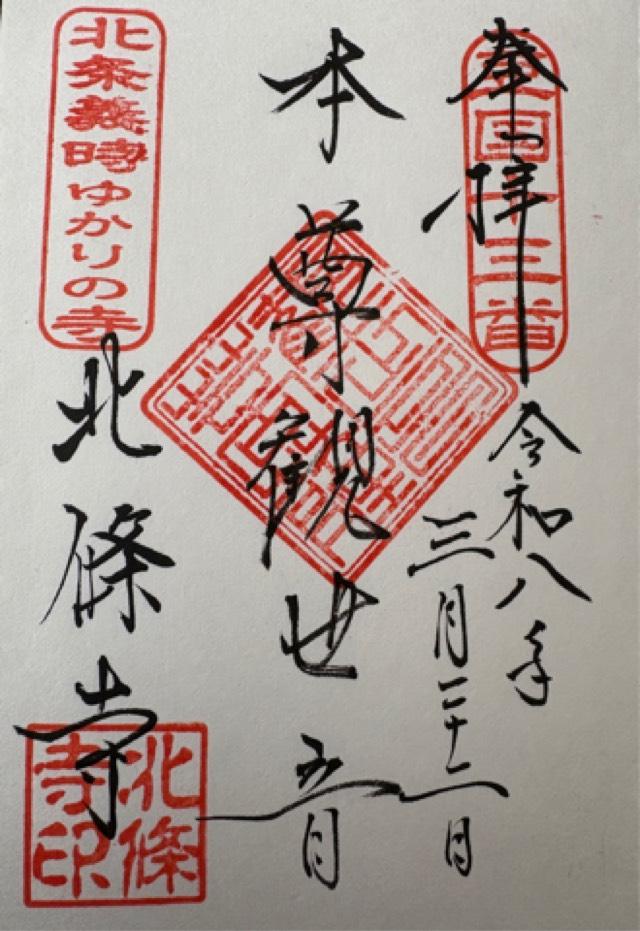 奉拝
豆国十三番
令和八年
三月二十一日
本尊観世音
北条義時ゆかりの寺
北條寺
北條
寺印